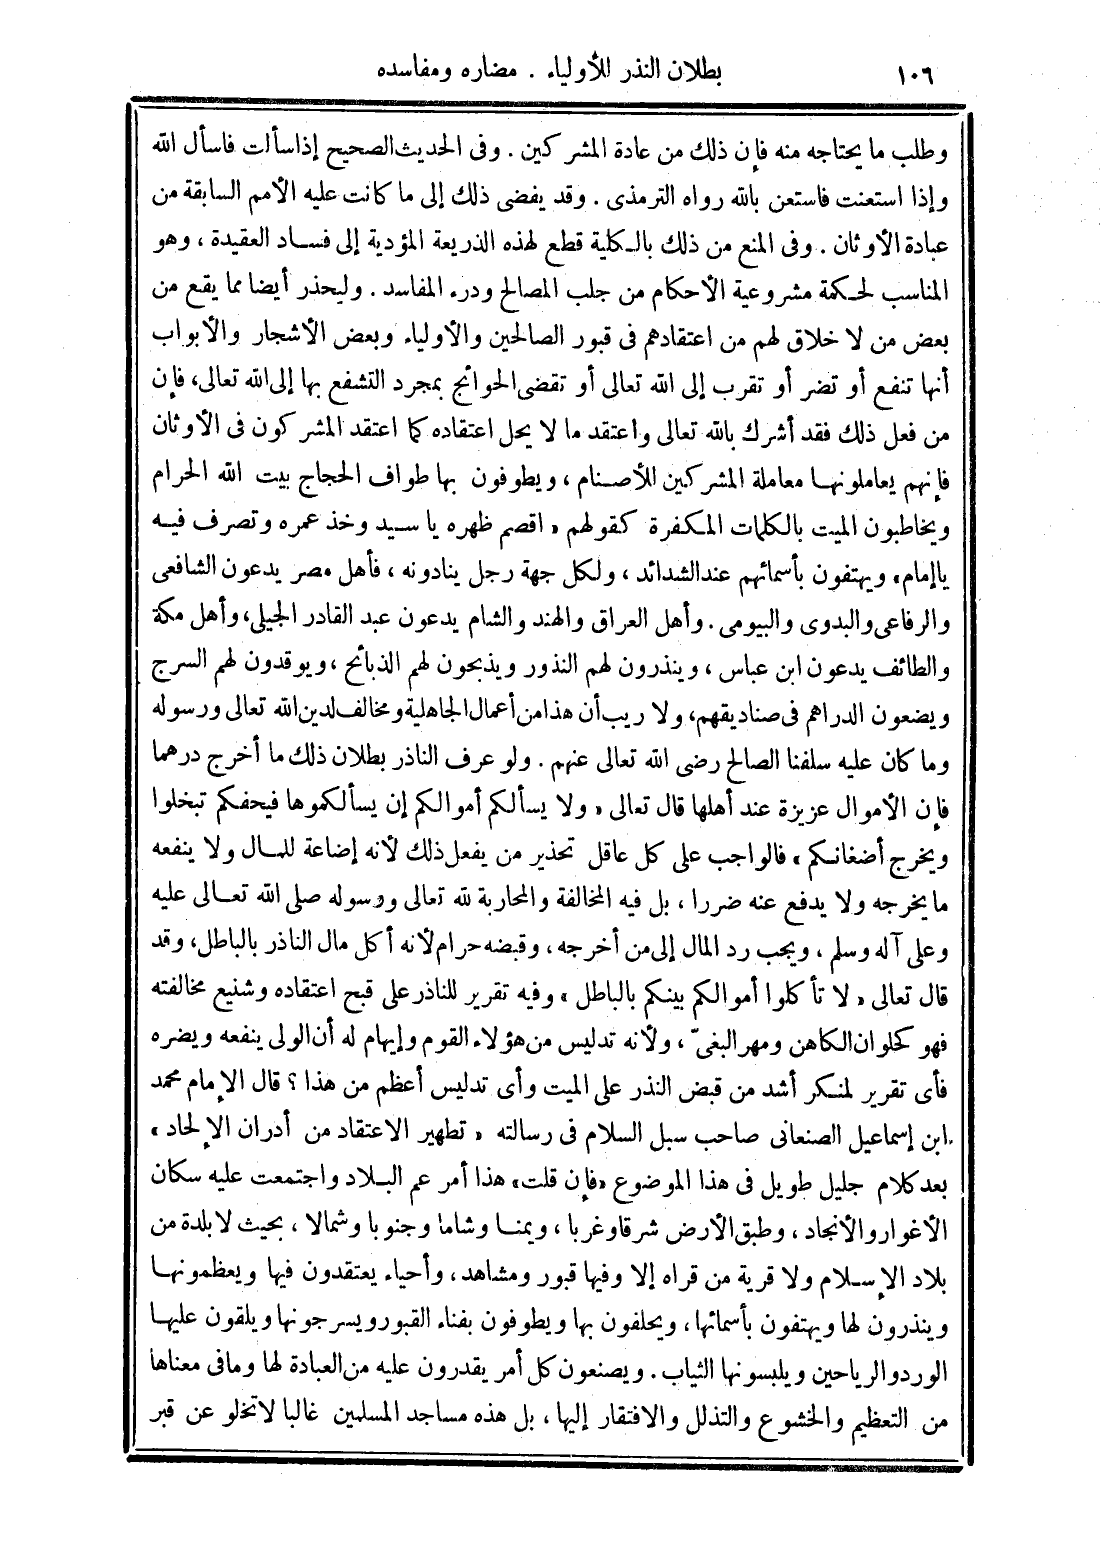 ١٠٦ بطلان النذر للأولياء . مضاره ومفاسده
وطلب ما يحتاجه منه فإن ذلك من عادة المشركين . وفى الحديث الصحيح إذا سألت فاسأل الله
وإذا استعنت فاستعن بالله رواه الترمذى . وقد يفضى ذلك إلى ما كانت عليه الأمم السابقة من
عبادة الأوثان . وفى المنع من ذلك بالكلية قطع لهذه الذريعة المؤدية إلى فساد العقيدة ، وهو
المناسب لحكمة مشروعية الأحكام من جلب المصالح ودرء المفاسد . وليحذر أيضا مما يقع من
بعض من لا خلاق لهم من اعتقادهم فى قبور الصالحين والأولياء وبعض الأشجار والأبواب
أنها تنفع أو تضر أو تقرب إلى الله تعالى أو تقضى الحوائج بمجرد التشفع بها إلى الله تعالى، فإن
من فعل ذلك فقد أشرك بالله تعالى واعتقد ما لا يحل اعتقاده كما اعتقد المشركون فى الأوثان
فإنهم يعاملونها معاملة المشركين للأصنام ، ويطوفون بها طواف الحجاج ببيت الله الحرام
ويخاطبون الميت بالكلمات المكفرة كقولهم « اقصم ظهره يا سيد وخذ عمره وتصرف فيه
يا إمام» ويهتفون بأسمائهم عند الشدائد ، ولكل جهة رجل ينادونه ، فأهل مصر يدعون الشافعى
والرفاعى والبدوى والبيومى . وأهل العراق والهند والشام يدعون عبد القادر الجيلى، وأهل مكة
والطائف يدعون ابن عباس ، وينذرون لهم النذور ويذبحون لهم الذبائح ، ويوقدون لهم السرج
ويضعون الدراهم فى صناديقهم، ولا ريب أن هذا من أعمال الجاهلية ومخالف لدين الله تعالى ورسوله
وما كان عليه سلفنا الصالح رضى الله تعالى عنهم . ولو عرف الناذر بطلان ذلك ما أخرج درهما
فإن الأموال عزيزة عند أهلها قال تعالى « ولا يسألكم أموالكم إن يسألكموها فيحفكم تبخلوا
ويخرج أضغانكم » فالواجب على كل عاقل تحذير من يفعل ذلك لأنه إضاعة للمال ولا ينفعه
ما يخرجه ولا يدفع عنه ضررا ، بل فيه المخالفة والمحاربة لله تعالى ورسوله صلى الله تعالى عليه
وعلى آله وسلم ، ويجب رد المال إلى من أخرجه ، وقبضه حرام لأنه أكل مال الناذر بالباطل، وقد
قال تعالى « لا تأكلوا أموالكم بينكم بالباطل » وفيه تقرير للناذر على قبح اعتقاده وشنيع مخالفته
فهو كحلوان الكاهن ومهر البغىّ ، ولأنه تدليس من هؤلاء القوم وإيهام له أن الولى ينفعه ويضره
فأى تقرير لمنكر أشد من قبض النذر على الميت وأى تدليس أعظم من هذا ؟ قال الإمام محمد
ابن إسماعيل الصنعانى صاحب سبل السلام فى رسالته « تطهير الاعتقاد من أدران الإلحاد »
بعد كلام جليل طويل فى هذا الموضوع «فإن قلت» هذا أمر عم البلاد واجتمعت عليه سكان
الأغوار والأنجاد ، وطبق الأرض شرقا وغربا ، ويمنا وشاما وجنوبا وشمالا ، بحيث لا بلدة من
بلاد الإسلام ولا قرية من قراه إلا وفيها قبور ومشاهد، وأحياء يعتقدون فيها ويعظمونها
وينذرون لها ويهتفون بأسمائها، ويحلفون بها ويطوفون بفناء القبور ويسرجونها ويلقون عليها
الورد والرياحين ويلبسونها الثياب . ويصنعون كل أمر يقدرون عليه من العبادة لها وما فى معناها
من التعظيم والخشوع والتذلل والافتقار إليها ، بل هذه مساجد المسلمين غالبا لا تخلو عن قبر